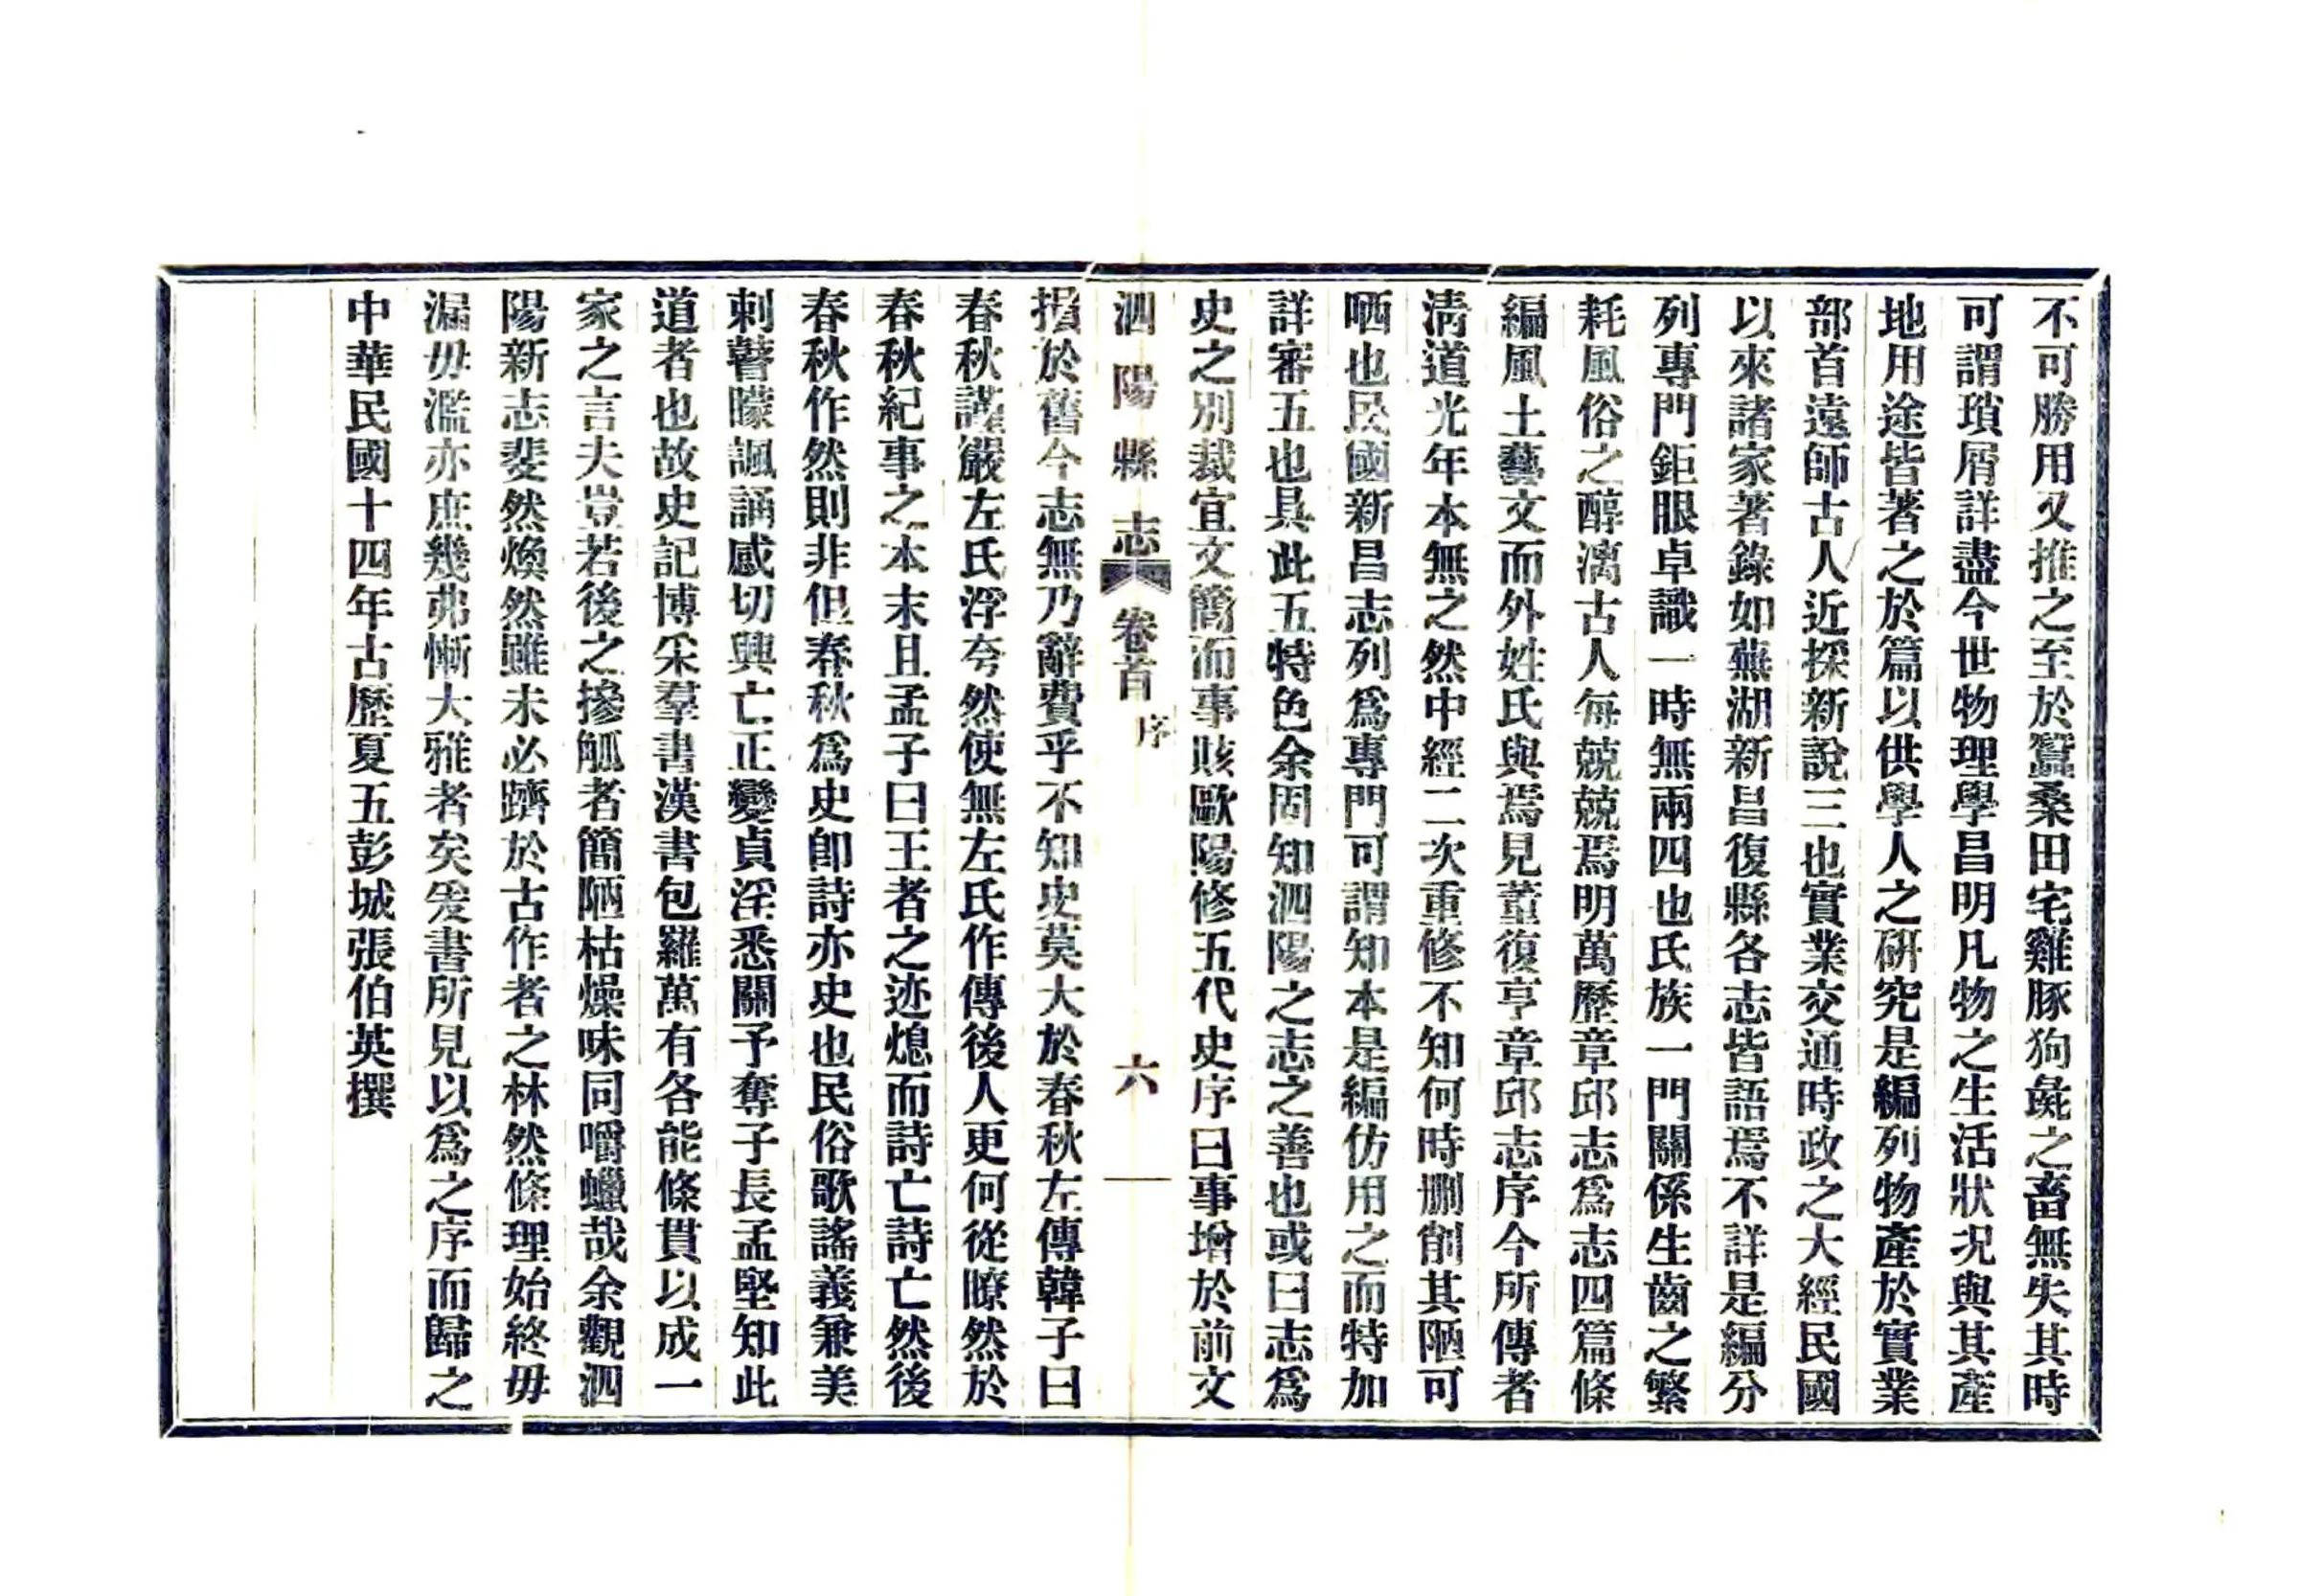 不可勝用又推之至於蠶桑田宅雞豚狗彘之畜無失其時
可謂瑣屑詳盡今世物理學昌明凡物之生活狀況與其產
地用途皆著之於篇以供學人之研究是編列物產於實業
部首遠師古人近採新說三也實業交通時政之大經民國
以來諸家著錄如蕪湖新昌復縣各志皆語焉不詳是編分
列專門鉅眼卓識一時無兩四也氏族一門關係生齒之繁
耗風俗之醇漓古人每兢兢焉明萬歷章邱志為志四篇條
編風土藝文而外姓氏與焉見董復亨章邱志序今所傳者
清道光年本無之然中經二次重修不知何時刪削其陋可
哂也民國新昌志列為專門可謂知本是編仿用之而特加
詳審五也具此五特色余固知泗陽之志之善也或曰志為
史之別裁宜文簡而事賅歐陽修五代史序曰事增於前文
泗陽縣志 卷首 序 六
損於舊今志無乃辭費乎不知史莫大於春秋左傳韓子曰
春秋謹嚴左氏浮夸然使無左氏作傳後人更何從瞭然於
春秋紀事之本末且孟子曰王者之迹熄而詩亡詩亡然後
春秋作然則非但春秋為史卽詩亦史也民俗歌謠義兼美
刺瞽矇諷誦感切興亡正變貞淫悉關予奪子長孟堅知此
道者也故史記博采羣書漢書包羅萬有各能條貫以成一
家之言夫豈若後之摻觚者簡陋枯燥味同嚼蠟哉余觀泗
陽新志斐然煥然雖未必躋於古作者之林然條理始終毋
漏毋濫亦庶幾弗慚大雅者矣爰書所見以為之序而歸之
中華民國十四年古歷夏五彭城張伯英撰